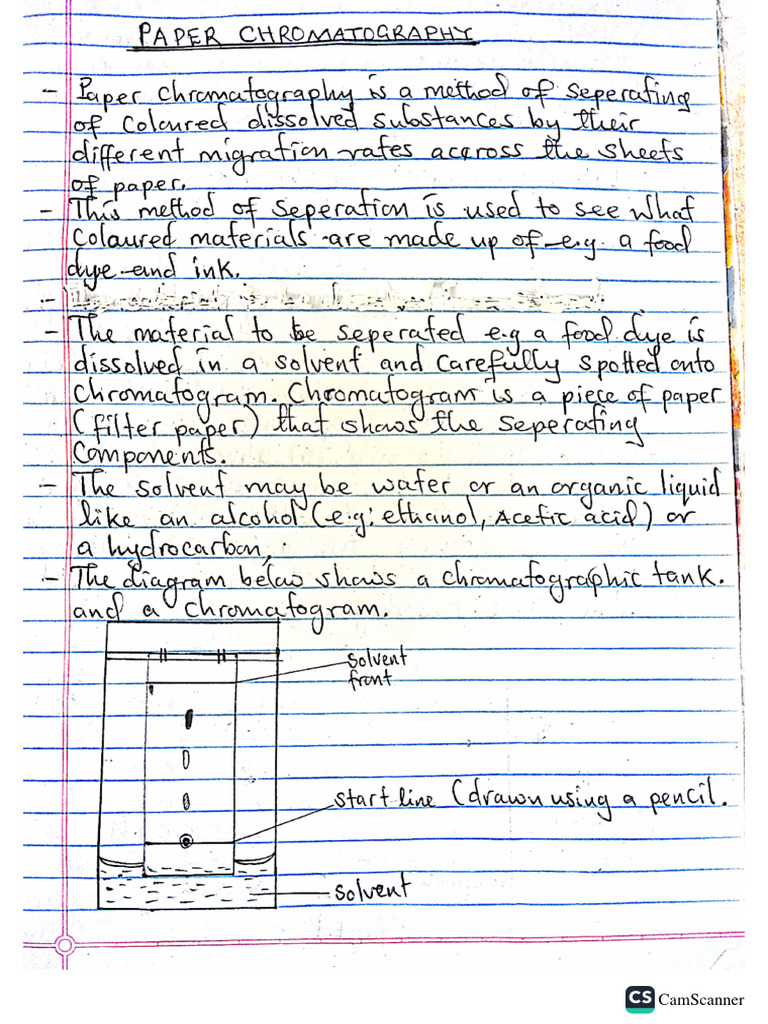 PAPER CHROMATOGRAPHY
- Paper chromatography is a method of seperating
of coloured dissolved substances by their
different migration rates accross the sheets
of paper.
- This method of seperation is used to see what
coloured materials are made up of e.g. a food
dye and ink.
- The material to be seperated e.g a food dye is
dissolved in a solvent and carefully spotted onto
chromatogram. Chromatogram is a piece of paper
(filter paper) that shows the seperating
components.
- The solvent may be water or an organic liquid
like an alcohol (e.g: ethanol, Acetic acid) or
a hydrocarbon.
- The diagram below shows a chromatographic tank.
and a chromatogram.
solvent
front
start line (drawn using a pencil.
solvent
CS CamScanner